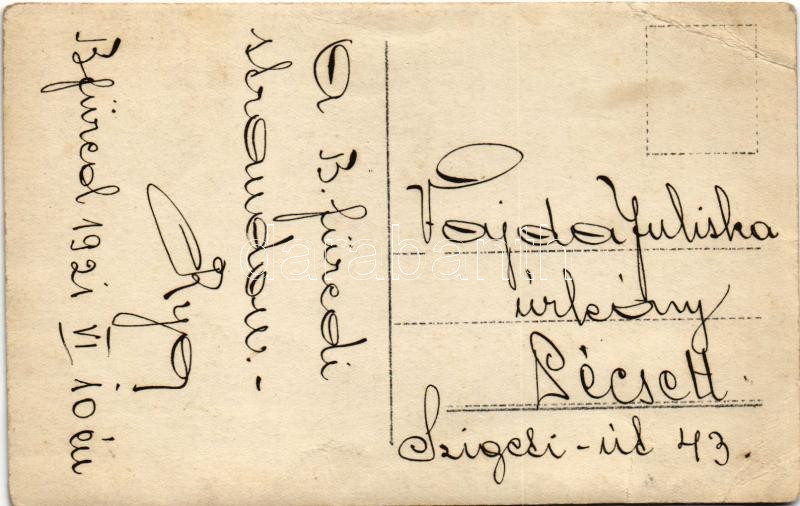 A B. füredi
strandon. -
Apa
B. füred 1921 VI 10 én
Vajda Juliska
úrleány
Pécsett.
Szigeti-út 43.
darabanth